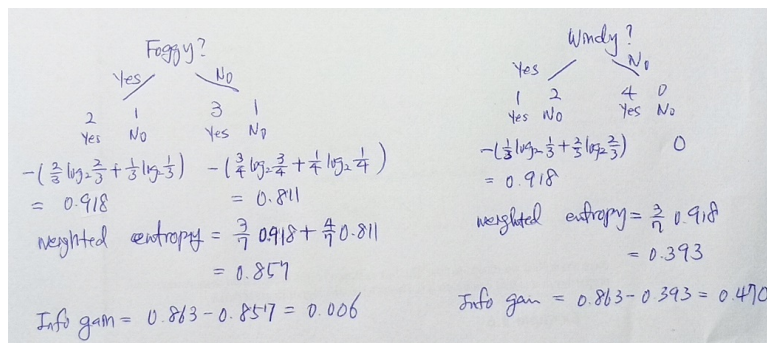 Foggy?
Yes No
2 1 3 1
Yes No Yes No
-(2/3 log₂ 2/3 + 1/3 log₂ 1/3) -(3/4 log₂ 3/4 + 1/4 log₂ 1/4)
= 0.918 = 0.811
weighted entropy = 3/7 0.918 + 4/7 0.811
= 0.857
Info gain = 0.863 - 0.857 = 0.006
Windy?
Yes No
1 2 4 0
Yes No Yes No
-(1/3 log₂ 1/3 + 2/3 log₂ 2/3) 0
= 0.918
weighted entropy = 3/7 0.918
= 0.393
Info gain = 0.863 - 0.393 = 0.470